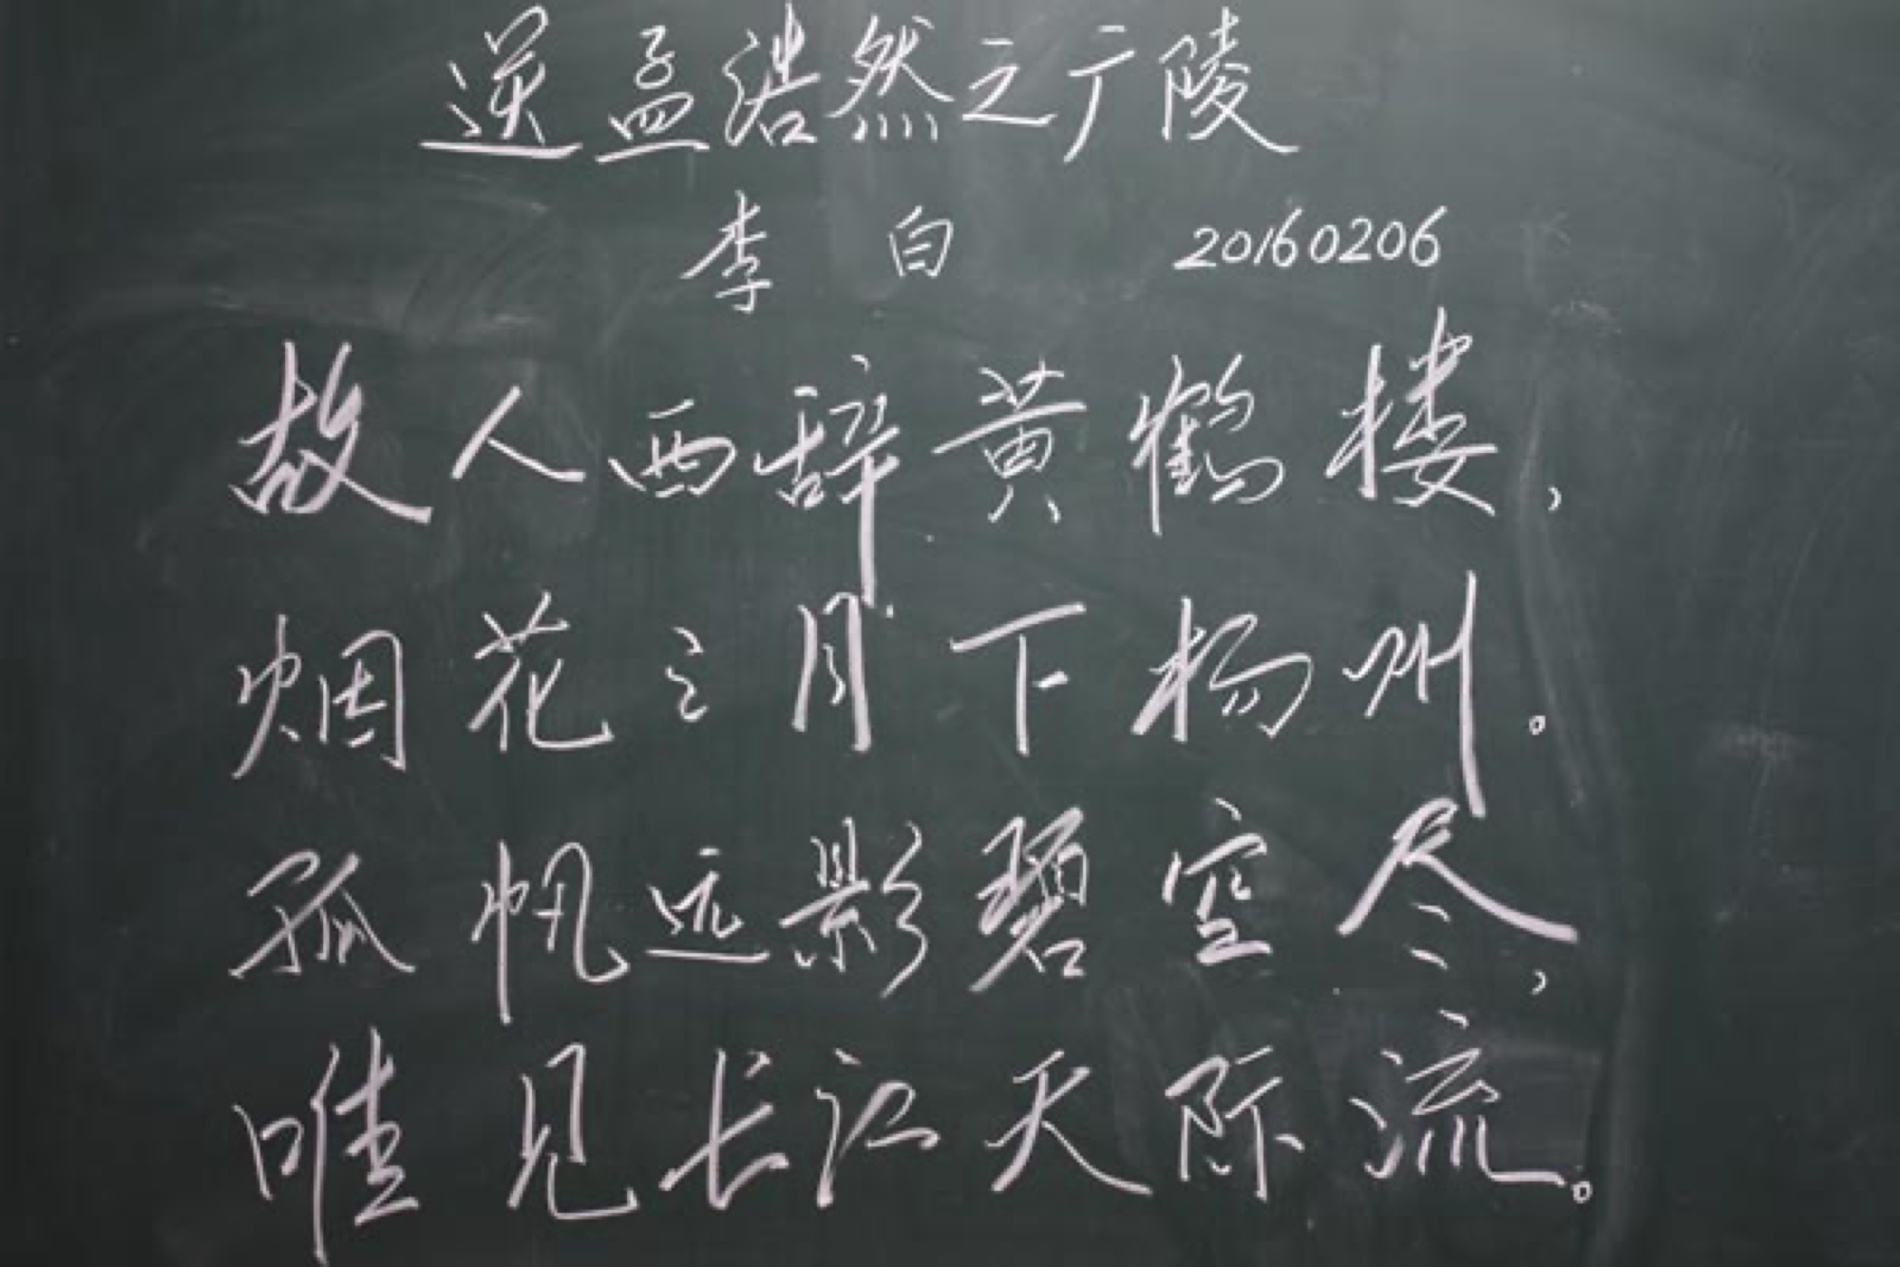 送孟浩然之广陵
李白 20160206
故人西辞黄鹤楼，
烟花三月下杨州。
孤帆远影碧空尽，
唯见长江天际流。